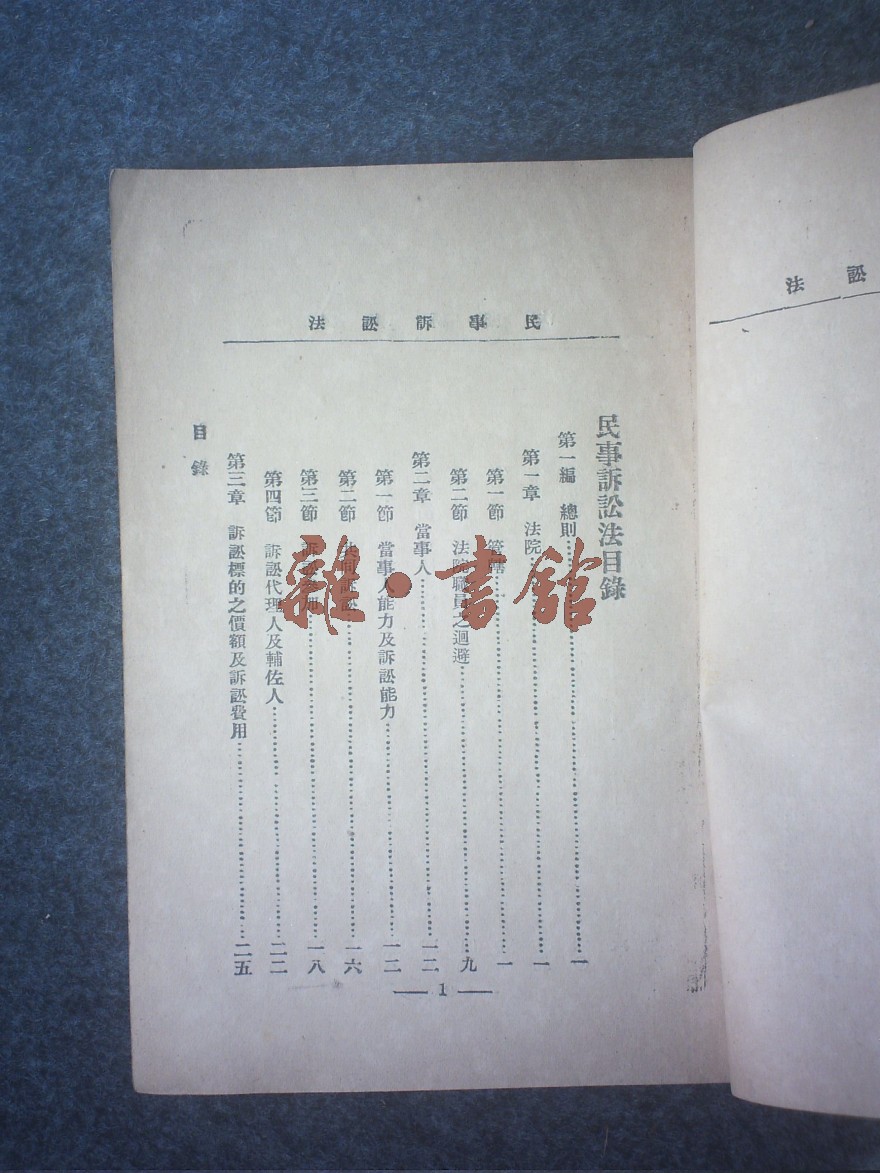 民事訴訟法
民事訴訟法目錄
第一編 總則⋯⋯一
第一章 法院⋯⋯一
第一節 管轄⋯⋯一
第二節 法院職員之迴避⋯⋯九
第二章 當事人⋯⋯一二
第一節 當事人能力及訴訟能力⋯⋯一二
第二節 共同訴訟⋯⋯一六
第三節 訴訟參加⋯⋯一八
第四節 訴訟代理人及輔佐人⋯⋯二二
第三章 訴訟標的之價額及訴訟費用⋯⋯二五
目錄
— 1 —
訟法
雜·書館